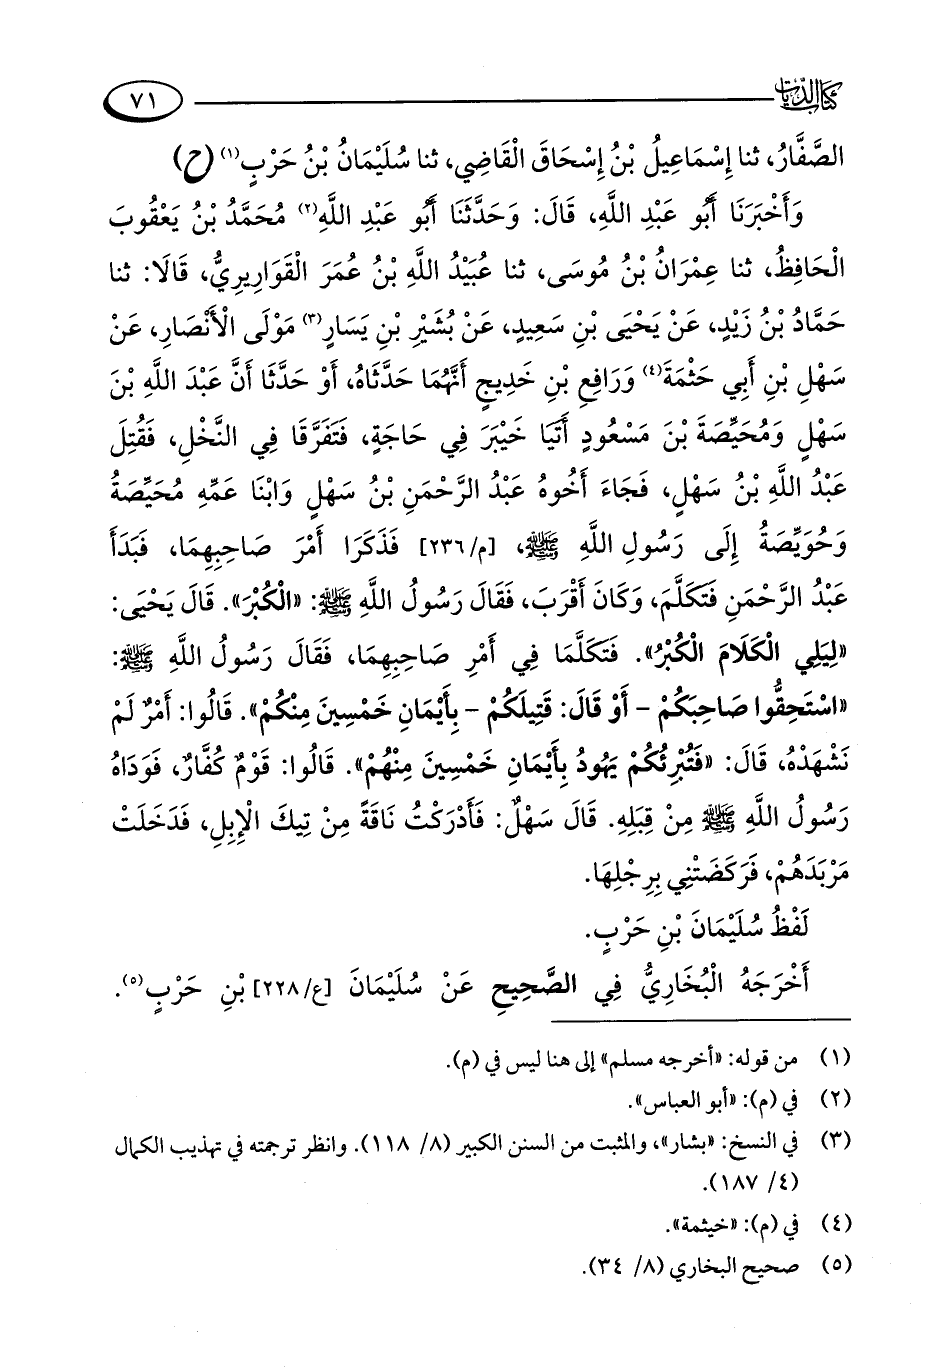 كتاب الديات
٧١
الصَّفَّارُ، ثنا إِسْمَاعِيلُ بْنُ إِسْحَاقَ الْقَاضِي، ثنا سُلَيْمَانُ بْنُ حَرْبٍ(١) (ح)
وَأَخْبَرَنَا أَبُو عَبْدِ اللَّهِ، قَالَ: وَحَدَّثَنَا أَبُو عَبْدِ اللَّهِ(٢) مُحَمَّدُ بْنُ يَعْقُوبَ
الْحَافِظُ، ثنا عِمْرَانُ بْنُ مُوسَى، ثنا عُبَيْدُ اللَّهِ بْنُ عُمَرَ الْقَوَارِيرِيُّ، قَالَا: ثنا
حَمَّادُ بْنُ زَيْدٍ، عَنْ يَحْيَى بْنِ سَعِيدٍ، عَنْ بُشَيْرِ بْنِ يَسَارٍ(٣) مَوْلَى الْأَنْصَارِ، عَنْ
سَهْلِ بْنِ أَبِي حَثْمَةَ(٤) وَرَافِعِ بْنِ خَدِيجٍ أَنَّهُمَا حَدَّثَاهُ، أَوْ حَدَّثَا أَنَّ عَبْدَ اللَّهِ بْنَ
سَهْلٍ وَمُحَيِّصَةَ بْنَ مَسْعُودٍ أَتَيَا خَيْبَرَ فِي حَاجَةٍ، فَتَفَرَّقَا فِي النَّخْلِ، فَقُتِلَ
عَبْدُ اللَّهِ بْنُ سَهْلٍ، فَجَاءَ أَخُوهُ عَبْدُ الرَّحْمَنِ بْنُ سَهْلٍ وَابْنَا عَمِّهِ مُحَيِّصَةُ
وَحُوَيِّصَةُ إِلَى رَسُولِ اللَّهِ ﷺ، [م/٢٣٦] فَذَكَرَا أَمْرَ صَاحِبِهِمَا، فَبَدَأَ
عَبْدُ الرَّحْمَنِ فَتَكَلَّمَ، وَكَانَ أَقْرَبَ، فَقَالَ رَسُولُ اللَّهِ ﷺ: «الْكُبْرَ». قَالَ يَحْيَى:
«لِيَلِي الْكَلَامَ الْكُبْرُ». فَتَكَلَّمَا فِي أَمْرِ صَاحِبِهِمَا، فَقَالَ رَسُولُ اللَّهِ ﷺ:
«اسْتَحِقُّوا صَاحِبَكُمْ - أَوْ قَالَ: قَتِيلَكُمْ - بِأَيْمَانِ خَمْسِينَ مِنْكُمْ». قَالُوا: أَمْرٌ لَمْ
نَشْهَدْهُ، قَالَ: «فَتُبْرِئُكُمْ يَهُودُ بِأَيْمَانِ خَمْسِينَ مِنْهُمْ». قَالُوا: قَوْمٌ كُفَّارٌ، فَوَدَاهُ
رَسُولُ اللَّهِ ﷺ مِنْ قِبَلِهِ. قَالَ سَهْلٌ: فَأَدْرَكْتُ نَاقَةً مِنْ تِيكَ الْإِبِلِ، فَدَخَلَتْ
مَرْبَدَهُمْ، فَرَكَضَتْنِي بِرِجْلِهَا.
لَفْظُ سُلَيْمَانَ بْنِ حَرْبٍ.
أَخْرَجَهُ الْبُخَارِيُّ فِي الصَّحِيحِ عَنْ سُلَيْمَانَ [ع/٢٢٨] بْنِ حَرْبٍ(٥).
(١) من قوله: «أخرجه مسلم» إلى هنا ليس في (م).
(٢) في (م): «أبو العباس».
(٣) في النسخ: «بشار»، والمثبت من السنن الكبير (٨/ ١١٨). وانظر ترجمته في تهذيب الكمال
(٤/ ١٨٧).
(٤) في (م): «خيثمة».
(٥) صحيح البخاري (٨/ ٣٤).